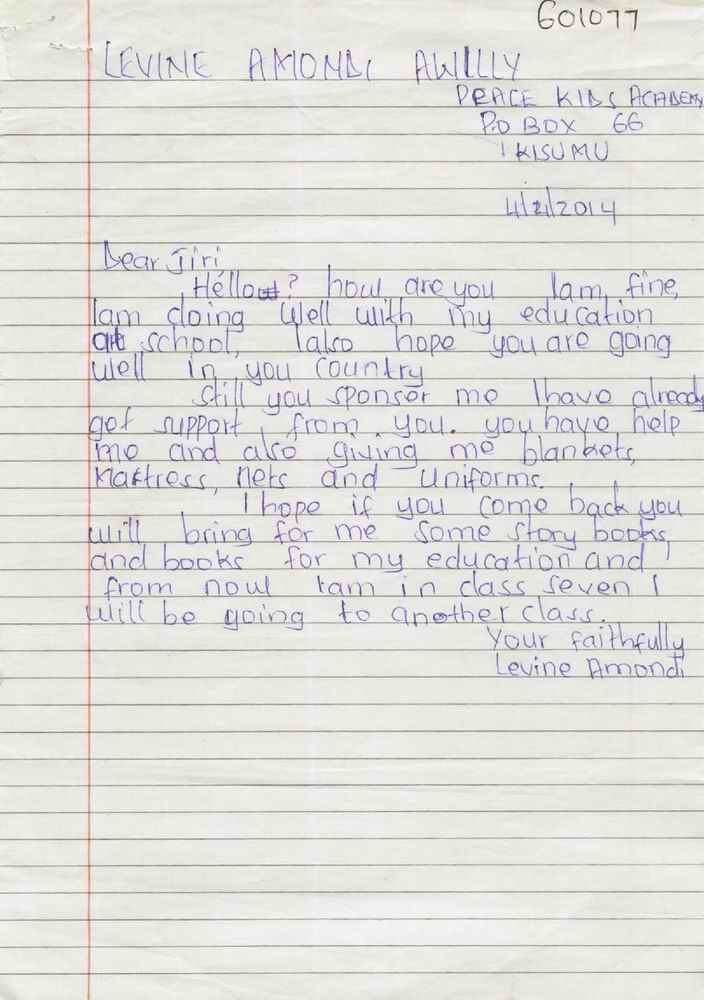 G01077
LEVINE AMONDI AWILLY
PEACE KIDS ACADEMY
P.O BOX 66
KISUMU
4/2/2014
Dear Jiri
Hello? how are you Iam fine,
Iam doing well with my education
at school, Ialso hope you are going
well in you country
still you sponser me Ihave already
got support from you. you have help
me and also giving me blankets,
Mattress, nets and uniforms.
I hope if you come back you
will bring for me some story books
and books for my education and
from now Iam in class seven I
will be going to another class.
Your faithfully
Levine Amondi